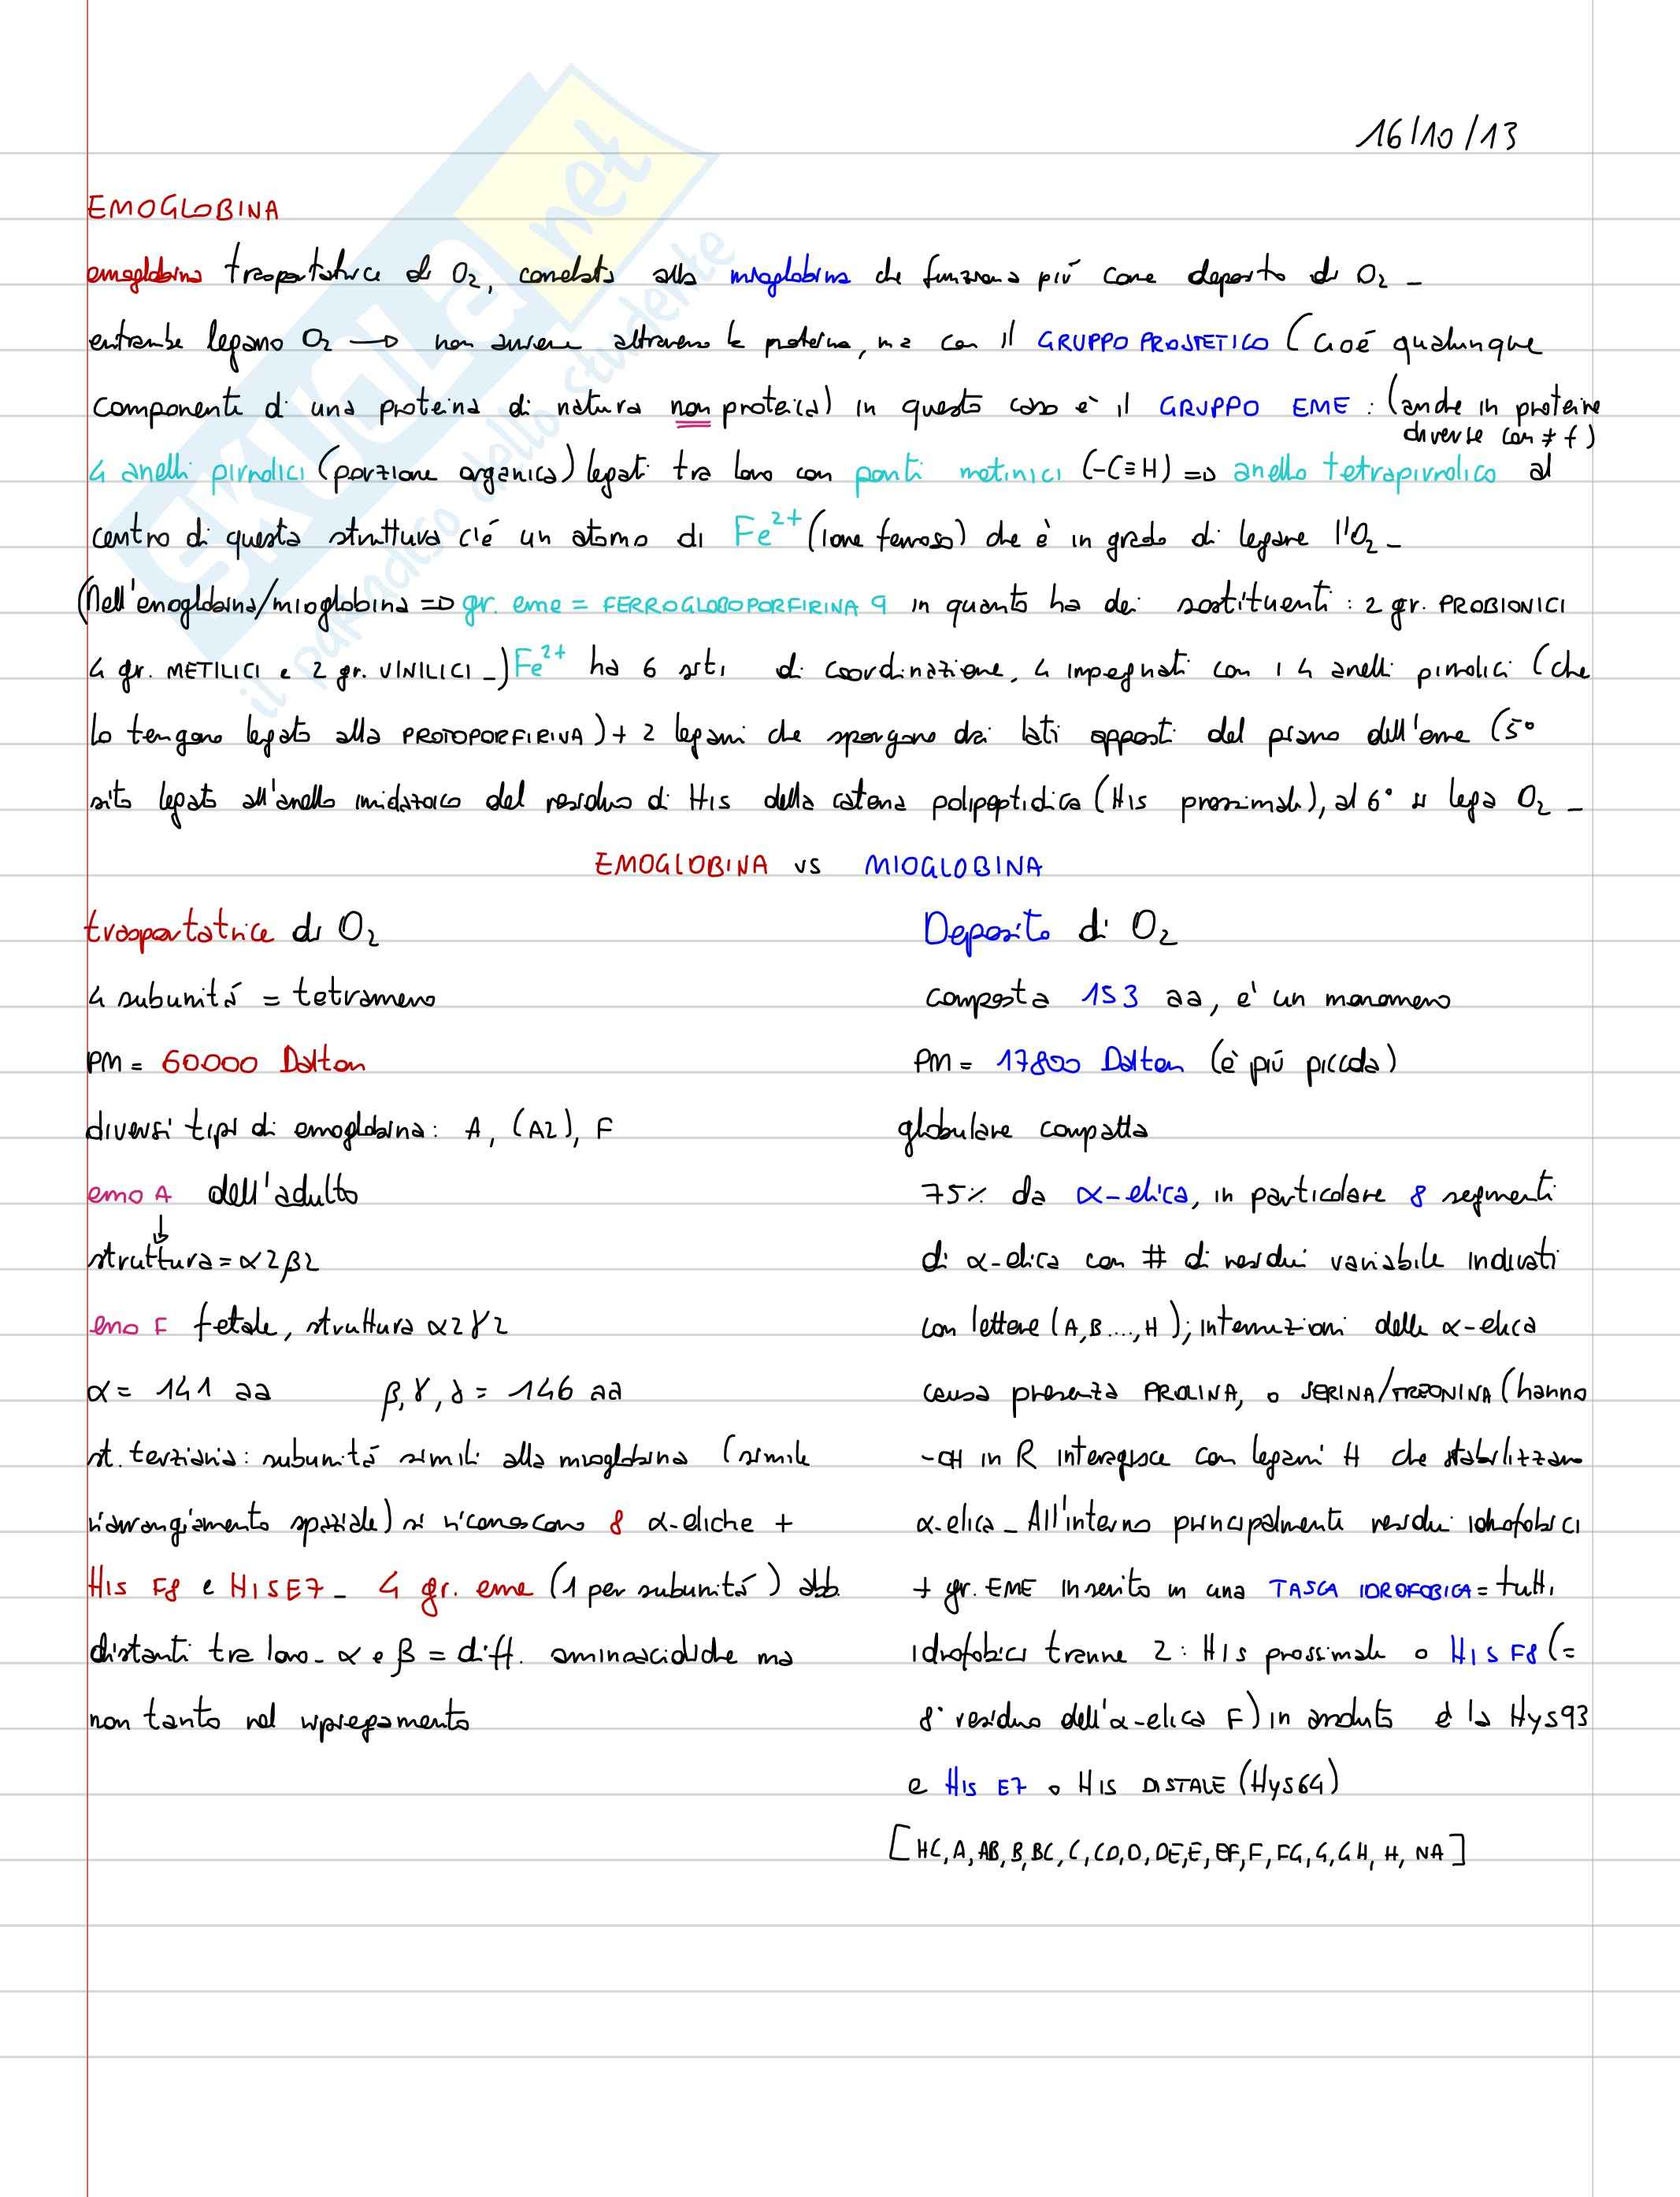 16/10/13
EMOGLOBINA
emoglobina trasportatrice di O₂, correlata alla mioglobina che funziona più come deposito di O₂ –
entrambe legano O₂ → non avviene attraverso la proteina, ma con il GRUPPO PROSTETICO (cioé qualunque
componente di una proteina di natura non proteica) in questo caso è il GRUPPO EME : (anche in proteine
diverse con ≠ f)
4 anelli pirrolici (porzione organica) legati tra loro con ponti metinici (-C≡H) => anello tetrapirrolico al
centro di questa struttura c'é un atomo di Fe²⁺ (ione ferroso) che è in grado di legare l'O₂ –
(Nell'emoglobina/mioglobina => gr. eme = FERROGLOBOPORFIRINA 9 in quanto ha dei sostituenti : 2 gr. PROBIONICI
4 gr. METILICI e 2 gr. VINILICI –) Fe²⁺ ha 6 siti di coordinazione, 4 impegnati con i 4 anelli pirrolici (che
lo tengono legato alla PROTOPORFIRINA) + 2 legami che sporgono dai lati opposti del piano dell'eme (5°
sito legato all'anello imidazolico del residuo di His della catena polipeptidica (His prossimale), al 6° si lega O₂ –
EMOGLOBINA vs MIOGLOBINA
trasportatrice di O₂
4 subunitá = tetramero
PM = 60000 Dalton
diversi tipi di emoglobina: A, (A2), F
emo A dell'adulto
↓
struttura = α2β2
emo F fetale, struttura α2γ2
α = 141 aa β, γ, δ = 146 aa
st. terziaria: subunitá simili alla mioglobina (simile
riarrangiamento spaziale) si riconoscono 8 α-eliche +
His F8 e HISE7 – 4 gr. eme (1 per subunitá) abb.
distanti tra loro – α e β = diff. aminoacidiche ma
non tanto nel ripiegamento
Deposito di O₂
composta 153 aa, e' un monomero
PM = 17800 Dalton (è più piccola)
globulare compatta
75% da α-elica, in particolare 8 segmenti
di α-elica con # di residui variabile indicati
con lettere (A, B ..., H); interruzioni delle α-elica
causa presenza PROLINA, o SERINA/TREONINA (hanno
-OH in R interagisce con legami H che stabilizzano
α-elica – All'interno principalmente residui idrofobici
+ gr. EME inserito in una TASCA IDROFOBICA = tutti
idrofobici tranne 2 : His prossimale o HIS F8 (=
8° residuo dell'α-elica F) in assoluto è la Hys93
e His E7 o His DISTALE (Hys64)
[HC, A, AB, B, BC, C, CD, D, DE, E, EF, F, FG, G, GH, H, NA]
SKUOLA.net
il paradiso dello studente